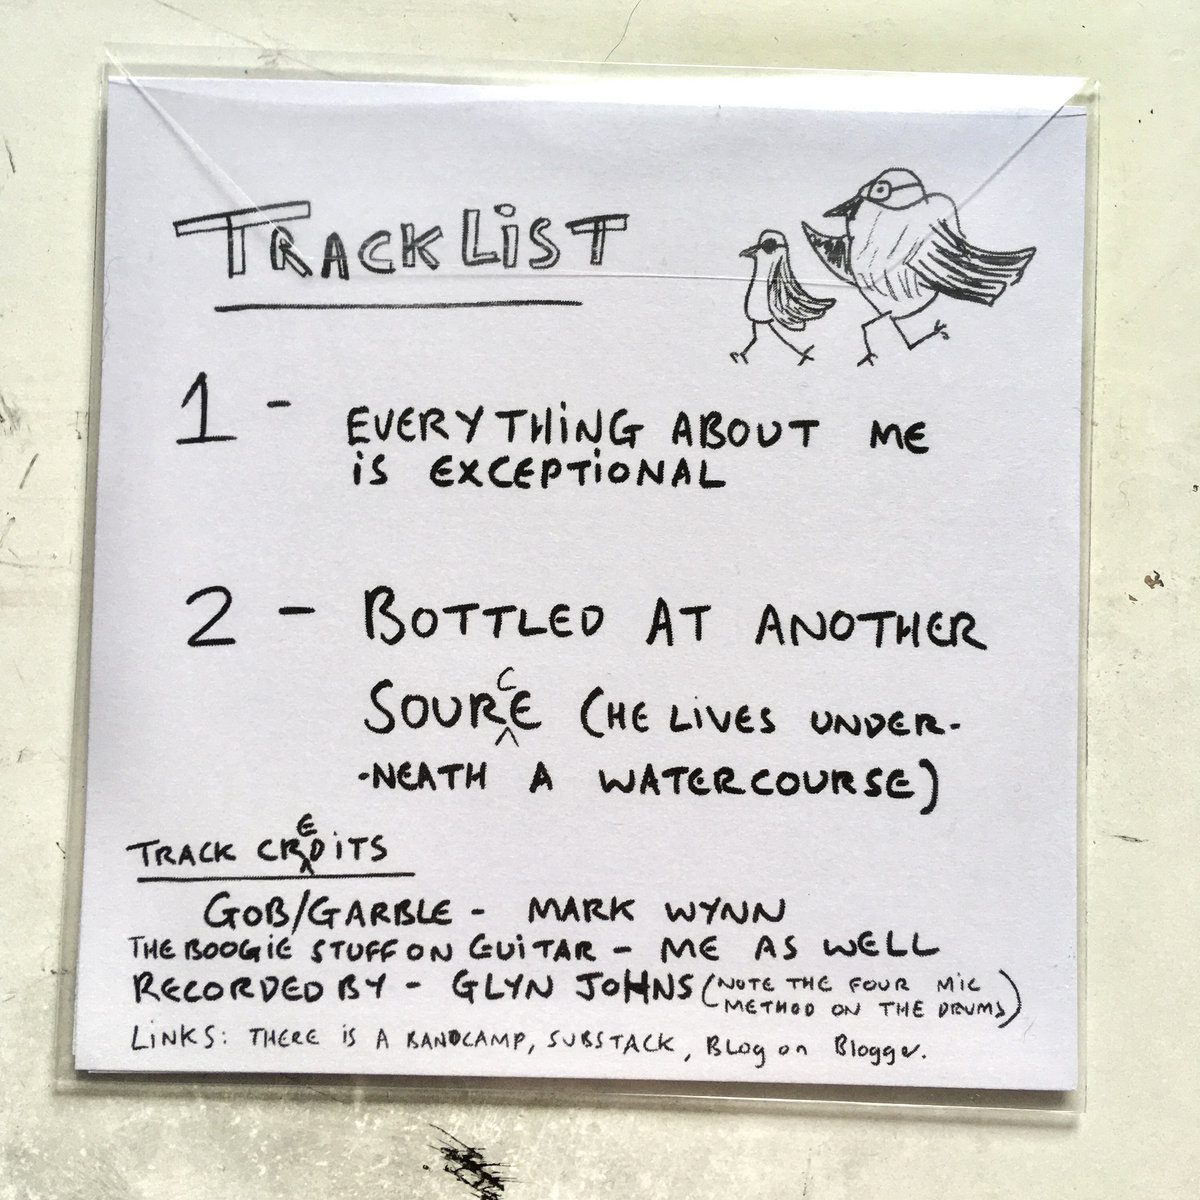 TRACKLiST
1 - EVERYTHiNG ABOUT ME
iS EXCEPTiONAL
2 - BOTTLED AT ANOTHER
SOURCE (HE LiVES UNDER-
-NEATH A WATERCOURSE)
TRACK CREDiTS
GOB/GARBLE - MARK WYNN
THE BOOGiE STUFF ON GUiTAR - ME AS WELL
RECORDED BY - GLYN JOHNS (NOTE THE FOUR MiC
METHOD ON THE DRUMS)
LiNKS: THERE iS A BANDCAMP, SUBSTACK, BLog on Blogger.